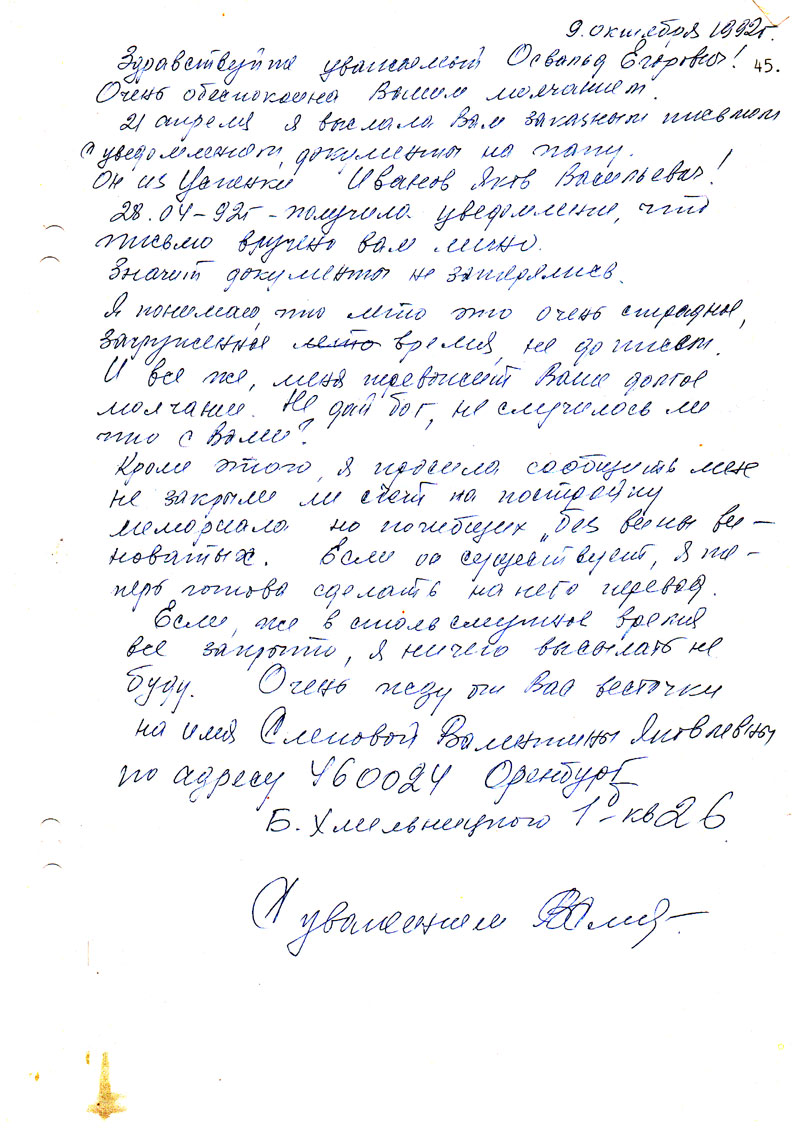 9. октября 1992г.
45.
Здравствуйте уважаемый Освальд Егорович!
Очень обеспокоена Вашим молчанием.
21 апреля я выслала Вам заказным письмом
с уведомлением, документы на папу.
Он из Успенки Иванов Яков Васильевич!
28.04-92г - получила уведомление, что
письмо вручено вам лично.
Значит документы не затерялись.
Я понимаю, что лето это очень страдное,
загруженное лето время, не до писем.
И все же, меня тревожит Ваше долгое
молчание. Не дай бог, не случилось ли
что с Вами?
Кроме этого, я просила сообщить мне
не закрыли ли счет на постройку
мемориала на погибших "без вины ви-
новатых. Если он существует, я те-
перь готова сделать на него перевод.
Если, же в столь смутное время
все закрыто, я ничего высылать не
буду. Очень жду от Вас весточки
на имя Слеповой Валентины Яковлевны
по адресу 460024 Оренбург
Б. Хмельницкого 1б - кв 26
С уважением